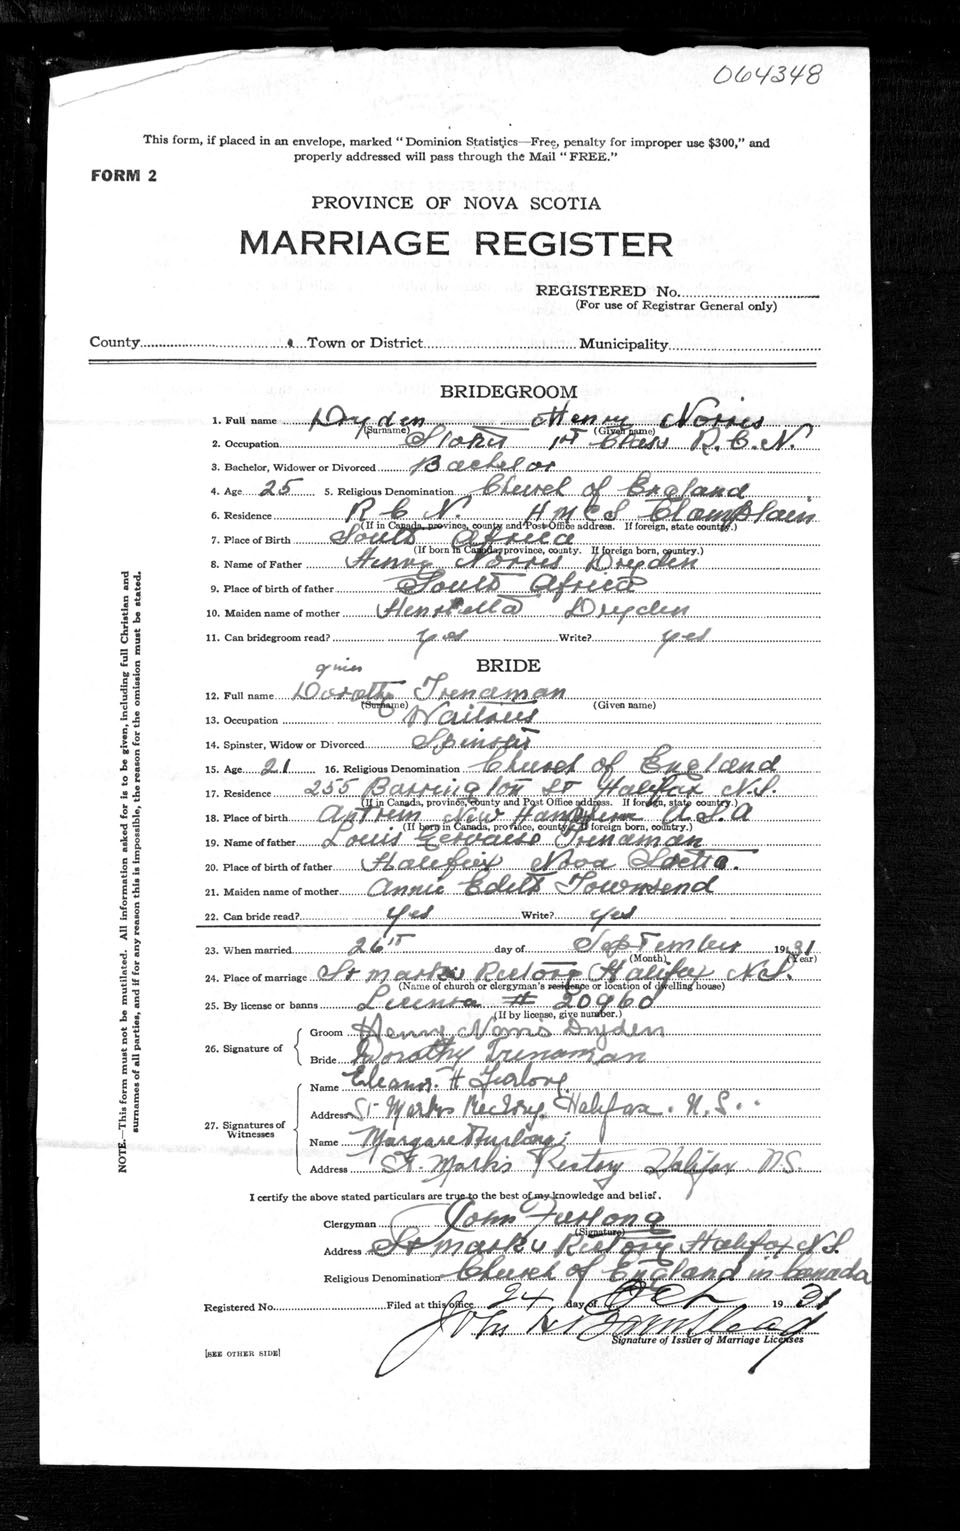 064348
This form, if placed in an envelope, marked "Dominion Statistics—Free, penalty for improper use $300," and
properly addressed will pass through the Mail "FREE."
FORM 2
PROVINCE OF NOVA SCOTIA
MARRIAGE REGISTER
REGISTERED No.
(For use of Registrar General only)
County Town or District Municipality
BRIDEGROOM
1. Full name Dryden Henry Norris
(Surname) (Given name)
2. Occupation Stoker 1st Class R.C.N.
3. Bachelor, Widower or Divorced Bachelor
4. Age 25 5. Religious Denomination Church of England
6. Residence R C N. H M C S Champlain
(If in Canada, province, county and Post Office address. If foreign, state country.)
7. Place of Birth South Africa
(If born in Canada, province, county. If foreign born, country.)
8. Name of Father Henry Norris Dryden
9. Place of birth of father South Africa
10. Maiden name of mother Henrietta Dryden
11. Can bridegroom read? yes Write? yes
BRIDE
12. Full name Dorothy Trenaman
(Surname) (Given name)
13. Occupation Waitress
14. Spinster, Widow or Divorced Spinster
15. Age 21 16. Religious Denomination Church of England
17. Residence 255 Barrington St Halifax N.S.
(If in Canada, province, county and Post Office address. If foreign, state country.)
18. Place of birth Antrim New Hampshire U.S.A
(If born in Canada, province, county. If foreign born, country.)
19. Name of father Louis Gervaise Trenaman
20. Place of birth of father Halifax Nova Scotia.
21. Maiden name of mother Annie Edith Townsend
22. Can bride read? yes Write? yes
23. When married 26th day of September 1931
(Month) (Year)
24. Place of marriage St Marks Rectory Halifax N.S.
(Name of church or clergyman's residence or location of dwelling house)
25. By license or banns License # 20960
(If by license, give number.)
26. Signature of
Groom Henry Norris Dryden
Bride Dorothy Trenaman
27. Signatures of Witnesses
Name Eleanor H Furlong
Address St Marks Rectory, Halifax. N.S.
Name Margaret Furlong
Address St. Mark's Rectory Halifax N.S.
I certify the above stated particulars are true to the best of my knowledge and belief.
Clergyman John Furlong
(Signature)
Address St Marks Rectory Halifax N.S.
Religious Denomination Church of England in Canada
Registered No. Filed at this office 24 day of Oct 1931
John
Signature of Issuer of Marriage Licenses
[SEE OTHER SIDE]
NOTE.—This form must not be mutilated. All information asked for is to be given, including full Christian and
surnames of all parties, and if for any reason this is impossible, the reason for the omission must be stated.